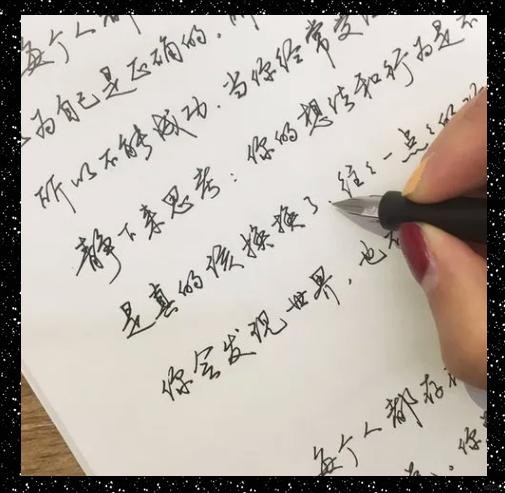 每个人都
为自己是正确的,所
所以不能成功.当你经常受
静下来思考:你的想法和行为是不
是真的该换换了.往往一点点的
你会发现世界,也
每个人都存
你